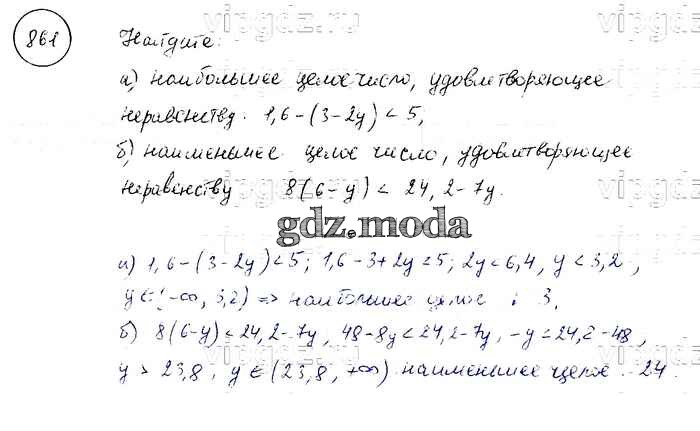 861
Найдите:
а) наибольшее целое число, удовлетворяющее
неравенству. 1,6-(3-2y)<5;
б) наименьшее целое число, удовлетворяющее
неравенству 8(6-y)< 24,2-7y.
gdz.moda
а) 1,6-(3-2y)<5; 1,6-3+2y<5; 2y<6,4, y<3,2,
y∈(-∞, 3,2) => наибольшее целое : 3.
б) 8(6-y)<24,2-7y, 48-8y<24,2-7y, -y<24,2-48,
y > 23,8, y∈(23,8, +∞) наименьшее целое : 24.
vipgdz.ru
vipgdz.ru
vipgdz.ru
vipgdz.ru
vipgdz.ru
vipgdz.ru